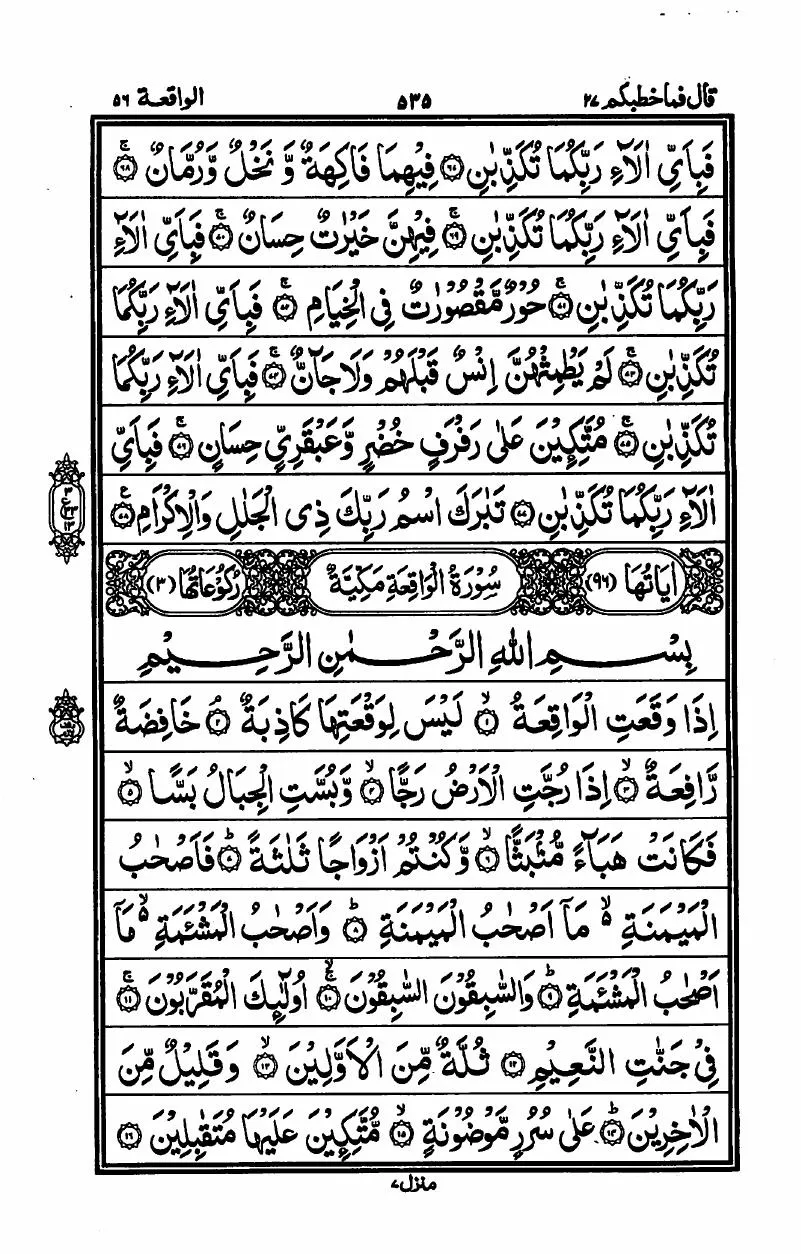 قال فما خطبکم ۲۷ ۵۳۵ الواقعة ۵۶
فَبِاَيِّ اٰلَآءِ رَبِّكُمَا تُكَذِّبٰنِ ﴿۶۷﴾ فِيْهِمَا فَاكِهَةٌ وَّ نَخْلٌ وَّرُمَّانٌ ۚ﴿۶۸﴾
فَبِاَيِّ اٰلَآءِ رَبِّكُمَا تُكَذِّبٰنِ ۚ﴿۶۹﴾ فِيْهِنَّ خَيْرٰتٌ حِسَانٌ ۚ﴿۷۰﴾ فَبِاَيِّ اٰلَآءِ
رَبِّكُمَا تُكَذِّبٰنِ ۚ﴿۷۱﴾ حُوْرٌ مَّقْصُوْرٰتٌ فِى الْخِيَامِ ۚ﴿۷۲﴾ فَبِاَيِّ اٰلَآءِ رَبِّكُمَا
تُكَذِّبٰنِ ۚ﴿۷۳﴾ لَمْ يَطْمِثْهُنَّ اِنْسٌ قَبْلَهُمْ وَلَا جَآنٌّ ۚ﴿۷۴﴾ فَبِاَيِّ اٰلَآءِ رَبِّكُمَا
تُكَذِّبٰنِ ۚ﴿۷۵﴾ مُتَّكِـِٕيْنَ عَلٰى رَفْرَفٍ خُضْرٍ وَّعَبْقَرِيٍّ حِسَانٍ ۚ﴿۷۶﴾ فَبِاَيِّ
اٰلَآءِ رَبِّكُمَا تُكَذِّبٰنِ ﴿۷۷﴾ تَبٰرَكَ اسْمُ رَبِّكَ ذِى الْجَلٰلِ وَالْاِكْرَامِ ﴿۷۸﴾
اٰيَاتُهَا (۹۶) سُوْرَةُ الْوَاقِعَةِ مَكِّيَّةٌ رُكُوْعَاتُهَا (۳)
بِسْمِ اللهِ الرَّحْمٰنِ الرَّحِيْمِ
اِذَا وَقَعَتِ الْوَاقِعَةُ ۙ﴿۱﴾ لَيْسَ لِوَقْعَتِهَا كَاذِبَةٌ ۘ﴿۲﴾ خَافِضَةٌ
رَّافِعَةٌ ۙ﴿۳﴾ اِذَا رُجَّتِ الْاَرْضُ رَجًّا ۙ﴿۴﴾ وَّبُسَّتِ الْجِبَالُ بَسًّا ۙ﴿۵﴾
فَكَانَتْ هَبَآءً مُّنْۢبَثًّا ۙ﴿۶﴾ وَّكُنْتُمْ اَزْوَاجًا ثَلٰثَةً ؕ﴿۷﴾ فَاَصْحٰبُ
الْمَيْمَنَةِ ۙ۬ مَاۤ اَصْحٰبُ الْمَيْمَنَةِ ؕ﴿۸﴾ وَاَصْحٰبُ الْمَشْـَٔمَةِ ۙ۬ مَاۤ
اَصْحٰبُ الْمَشْـَٔمَةِ ؕ﴿۹﴾ وَالسّٰبِقُوْنَ السّٰبِقُوْنَ ۚۙ﴿۱۰﴾ اُولٰٓئِكَ الْمُقَرَّبُوْنَ ۚ﴿۱۱﴾
فِيْ جَنّٰتِ النَّعِيْمِ ﴿۱۲﴾ ثُلَّةٌ مِّنَ الْاَوَّلِيْنَ ۙ﴿۱۳﴾ وَقَلِيْلٌ مِّنَ
الْاٰخِرِيْنَ ؕ﴿۱۴﴾ عَلٰى سُرُرٍ مَّوْضُوْنَةٍ ۙ﴿۱۵﴾ مُّتَّكِـِٕيْنَ عَلَيْهَا مُتَقٰبِلِيْنَ ﴿۱۶﴾
منزل ۷